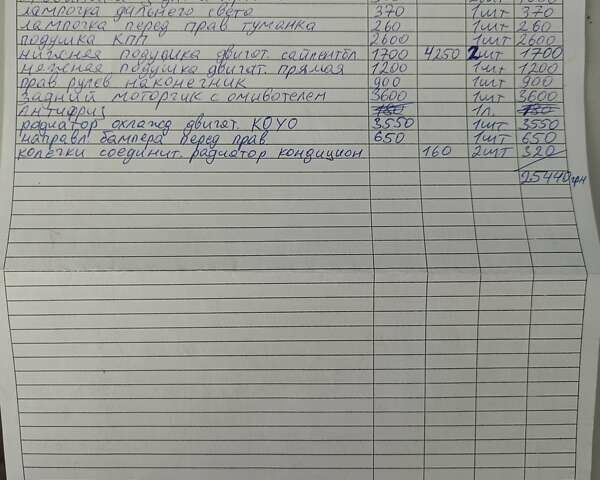 лампочка дальнего света 370 1шт 370
лампочка перед прав туманка 260 1шт 260
подушка КПП 2600 1шт 2600
нижняя подушка двигат. сайлентбл 1700 4250 2шт 1700
нижняя подушка двигат. прямая 1200 1шт 1200
прав рулев наконечник 900 1шт 900
Задний моторчик с омивателем 3600 1шт 3600
Антифриз 180 1л. 180
радиатор охлажд двигат. KOYO 3550 1шт 3550
направл. бампера перед прав. 650 1шт 650
колечки соединит. радиатор кондицион 160 2шт 320
25440грн